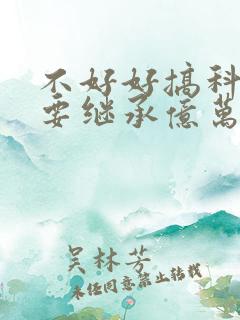 不好好搞科
要继承億萬
吴林芳
未经同意禁止转载